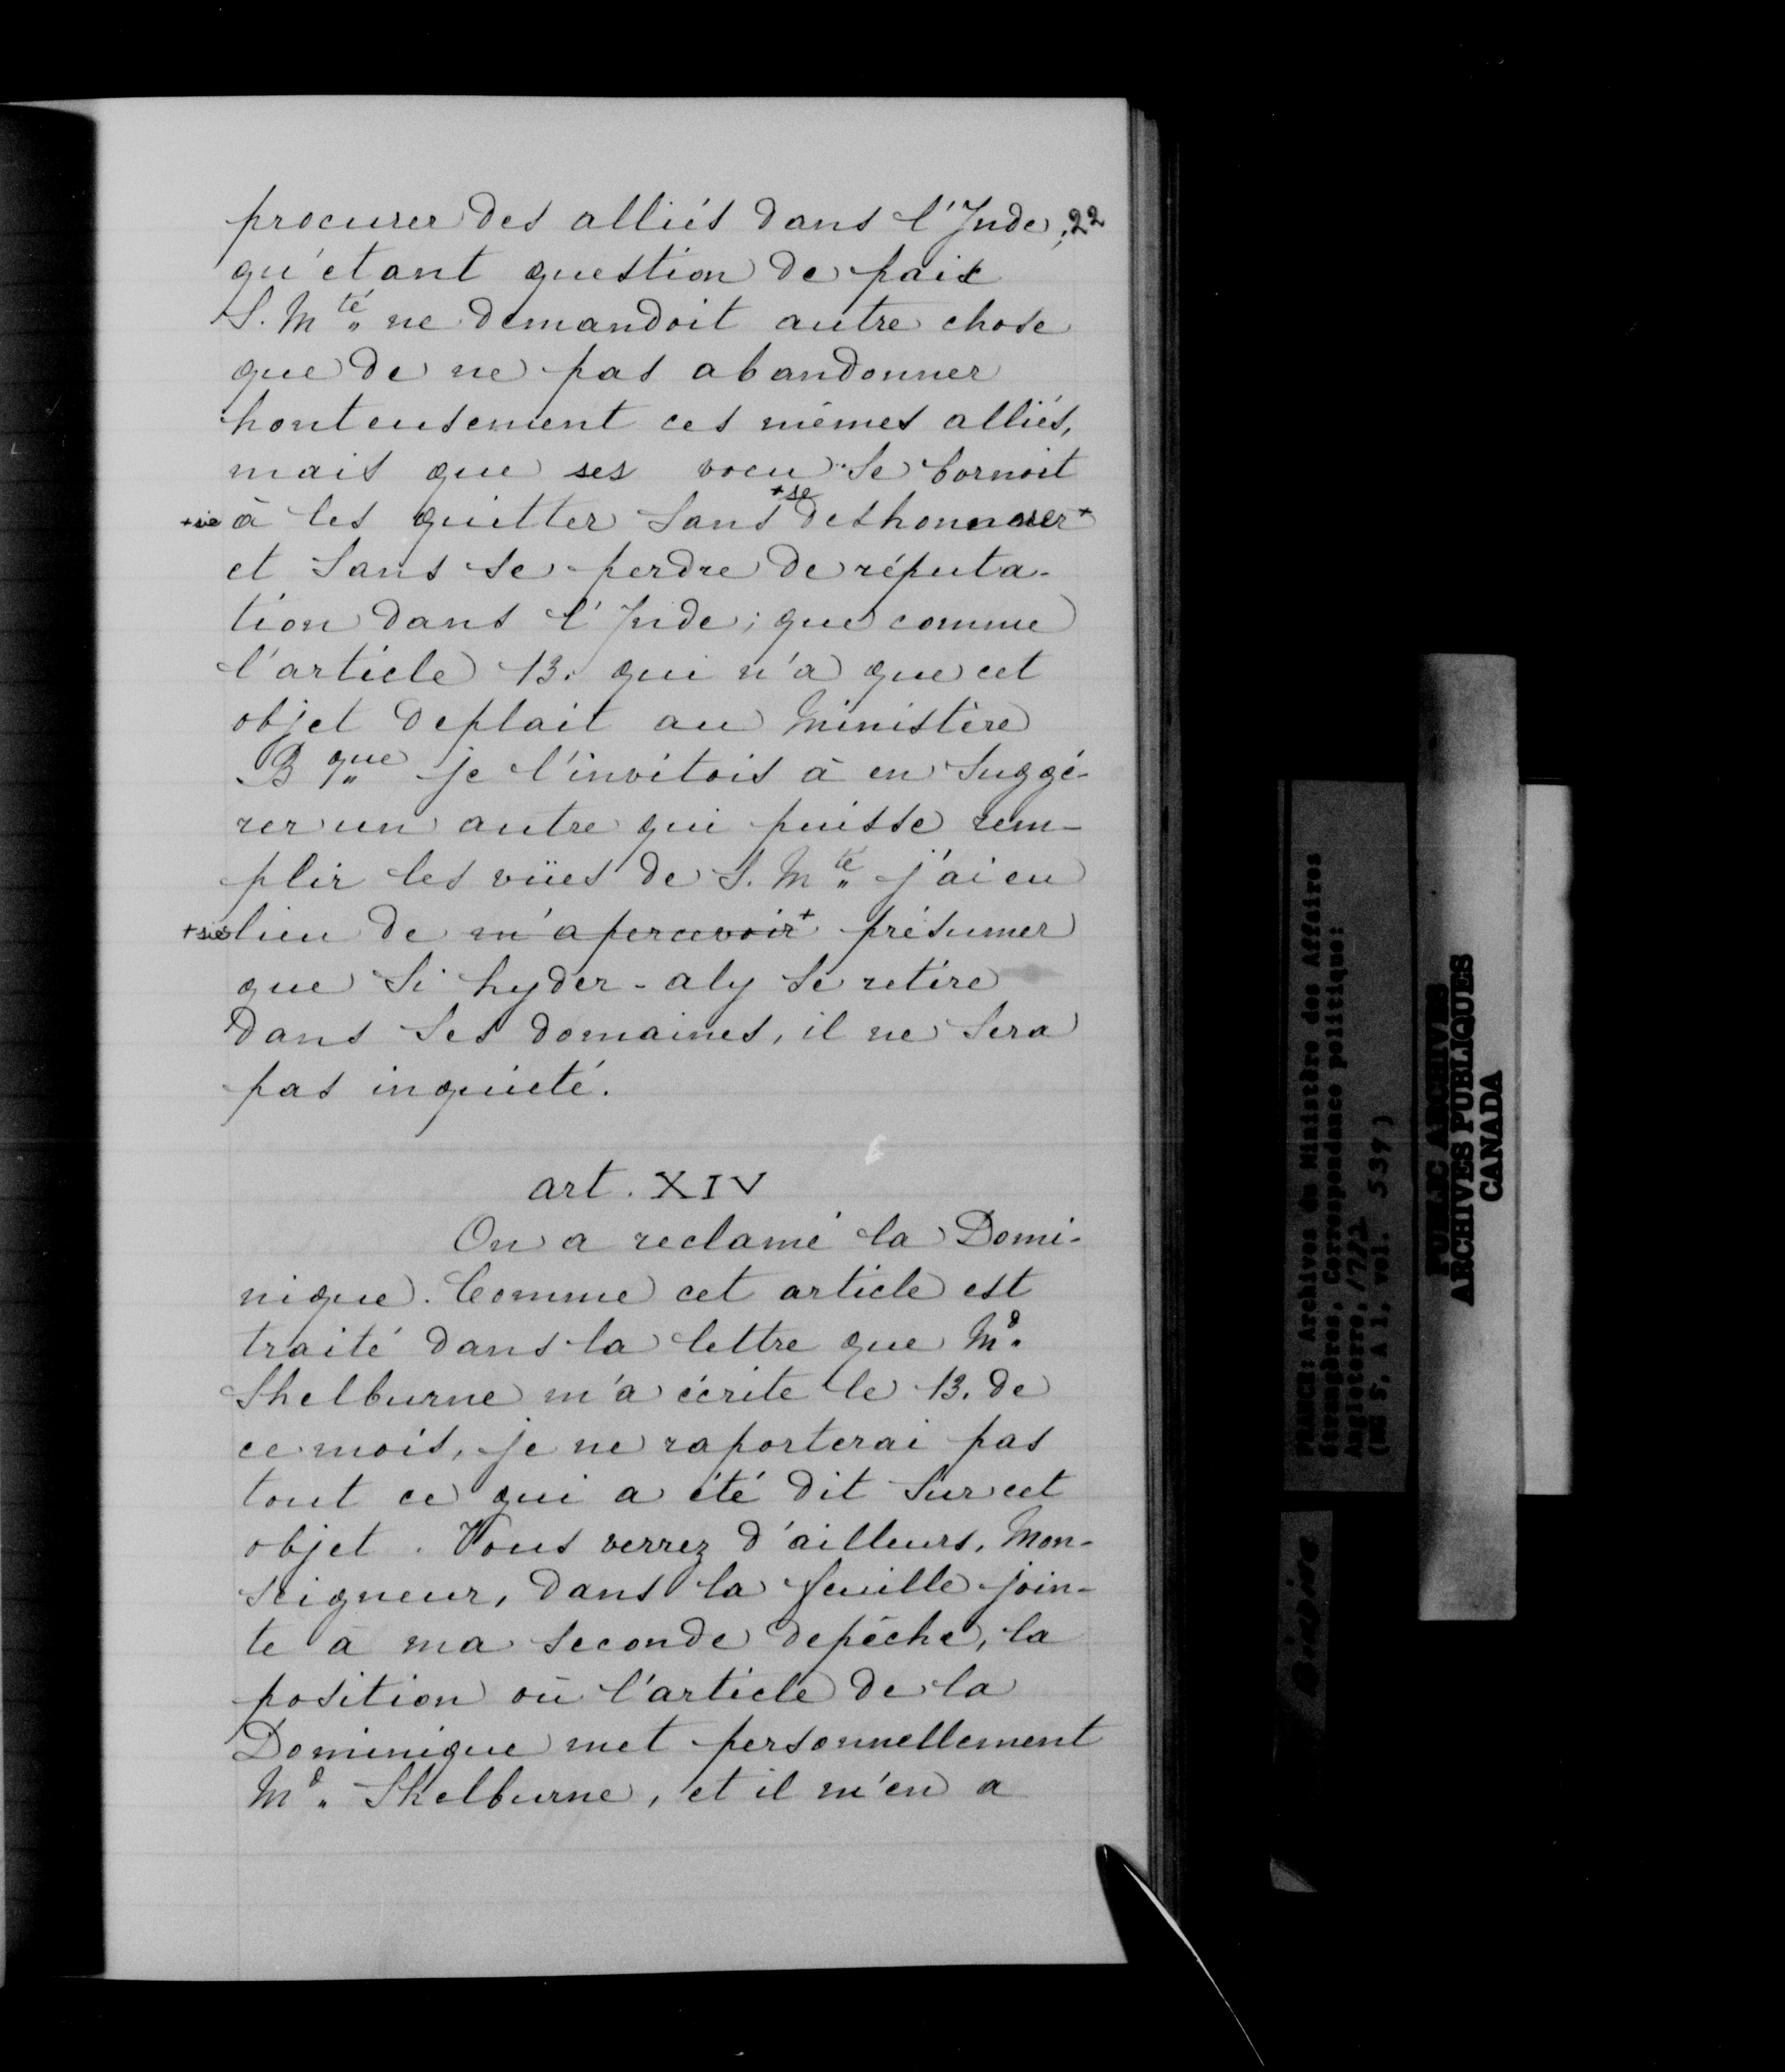 procurer des alliés dans l'Inde; 22
qu'etant question de paix
S. Mté ne demandoit autre chose
que de ne pas abandonner
honteusement ces mêmes alliés,
mais que ses voeu se bornoit
+sic à les quitter sans +se deshonnorer+
et sans se perdre de réputa-
tion dans l'Inde; que comme
l'article 13. qui n'a que cet
objet deplait au Ministère
Bque je l'invitois à en suggé-
rer un autre qui puisse rem-
plir les vües de S. Mté j'ai eu
+sic lieu de m'apercevoir+ présumer
que si hyder-aly se retire
dans ses domaines, il ne sera
pas inquiété.
art. XIV
On a reclamé la Domi-
nique. Comme cet article est
traité dans la lettre que Md.
Shelburne m'a écrite le 13. de
ce mois, je ne raporterai pas
tout ce qui a été dit sur cet
objet. Vous verrez d'ailleurs, Mon-
seigneur, dans la feuille join-
te à ma seconde depêche, la
position où l'article de la
Dominique met personnellement
Md. Shelburne, et il m'en a
FRANCE: Archives du Ministère des Affaires
étrangères, Correspondance politique:
Angleterre, 1772
(MG 5, A 1, vol. 537)
PUBLIC ARCHIVES
ARCHIVES PUBLIQUES
CANADA